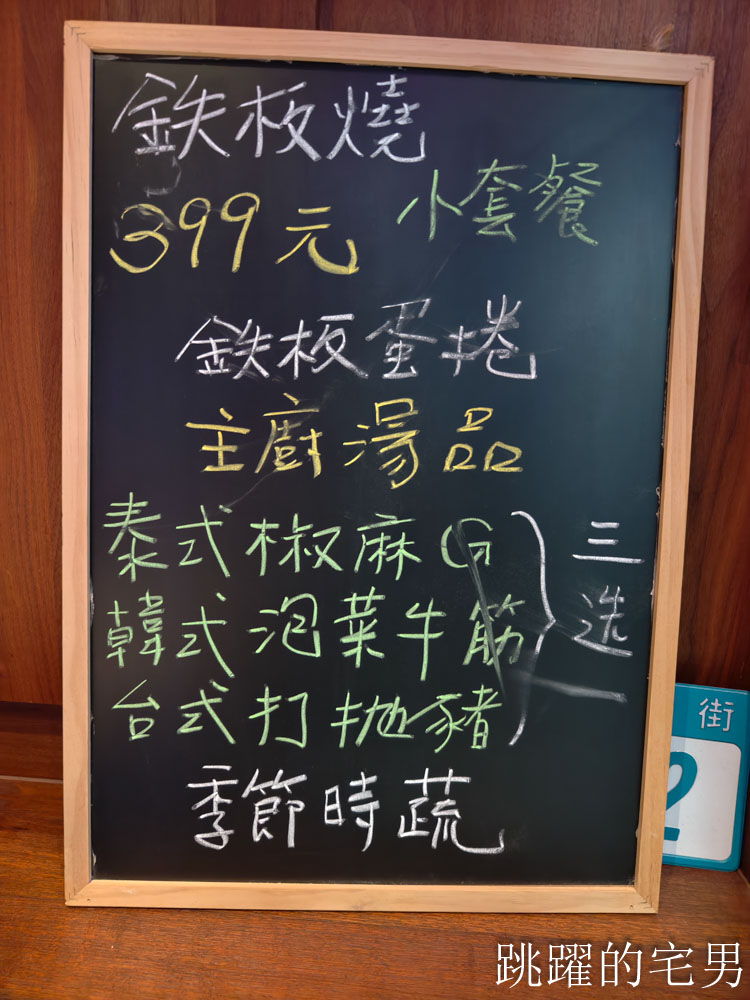 鉄板燒
399元 小套餐
鉄板蛋捲
主廚湯品
泰式椒麻G
韓式泡菜牛筋
台式打抛豬
三选一
季節時蔬
街
2
跳躍的宅男